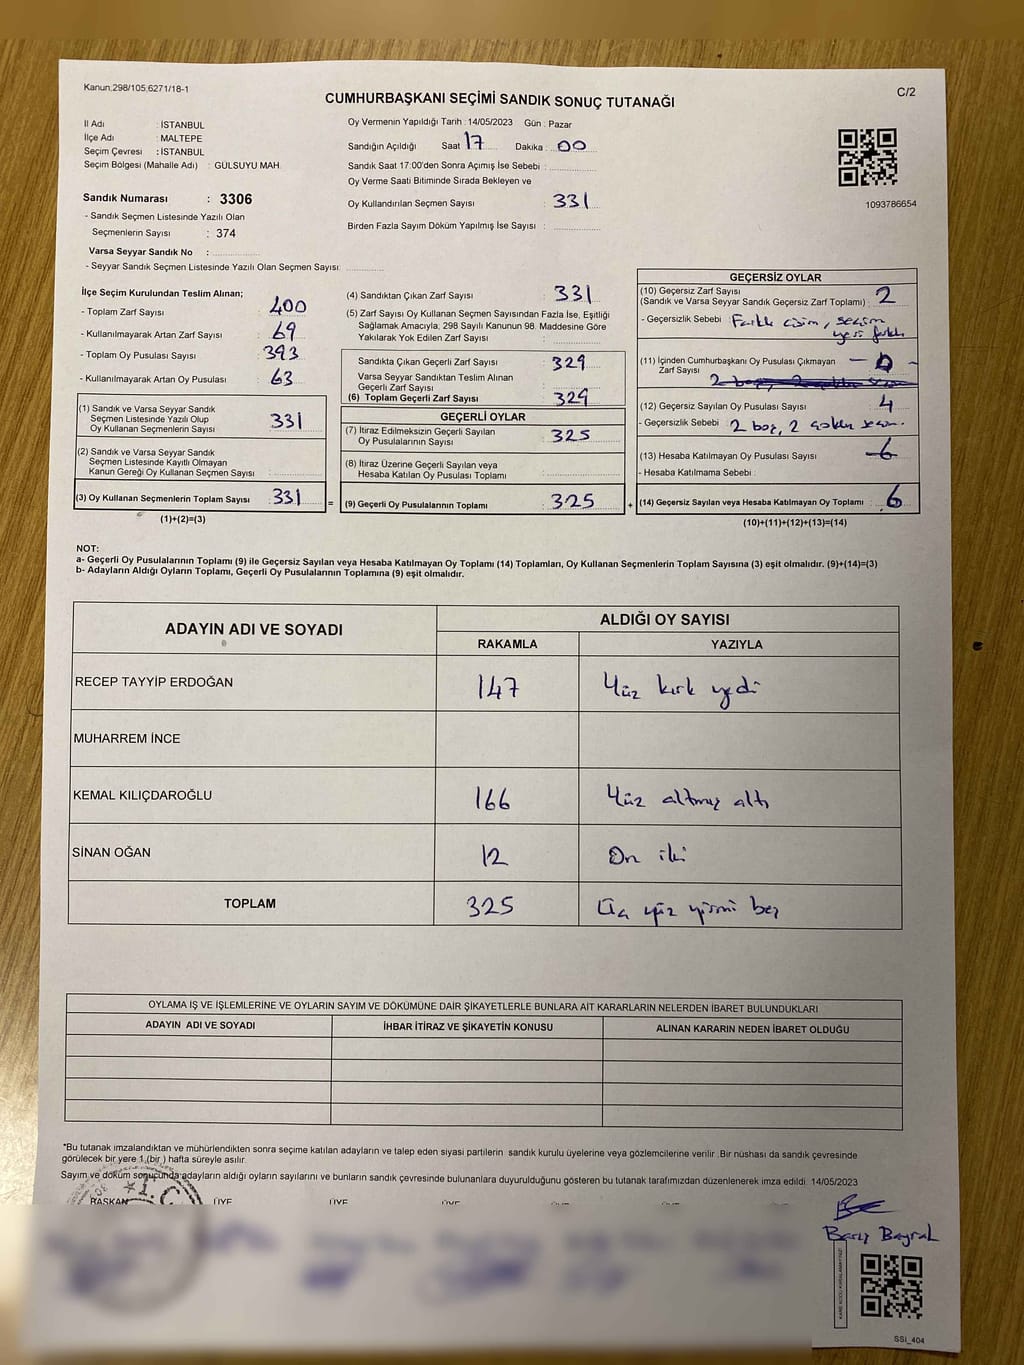 Kanun.298/105,6271/18-1
C/2
CUMHURBAŞKANI SEÇİMİ SANDIK SONUÇ TUTANAĞI
İl Adı : İSTANBUL
İlçe Adı : MALTEPE
Seçim Çevresi : İSTANBUL
Seçim Bölgesi (Mahalle Adı) : GÜLSUYU MAH.
Sandık Numarası : 3306
- Sandık Seçmen Listesinde Yazılı Olan
Seçmenlerin Sayısı : 374
Varsa Seyyar Sandık No :
- Seyyar Sandık Seçmen Listesinde Yazılı Olan Seçmen Sayısı:
Oy Vermenin Yapıldığı Tarih : 14/05/2023 Gün : Pazar
Sandığın Açıldığı Saat 17 Dakika : 00
Sandık Saat 17:00'den Sonra Açımış İse Sebebi :
Oy Verme Saati Bitiminde Sırada Bekleyen ve
Oy Kullandırılan Seçmen Sayısı : 331
Birden Fazla Sayım Döküm Yapılmış İse Sayısı :
1093786654
İlçe Seçim Kurulundan Teslim Alınan;
- Toplam Zarf Sayısı : 400
- Kullanılmayarak Artan Zarf Sayısı : 69
- Toplam Oy Pusulası Sayısı : 393
- Kullanılmayarak Artan Oy Pusulası : 63
(1) Sandık ve Varsa Seyyar Sandık
Seçmen Listesinde Yazılı Olup
Oy Kullanan Seçmenlerin Sayısı : 331
(2) Sandık ve Varsa Seyyar Sandık
Seçmen Listesinde Kayıtlı Olmayan
Kanun Gereği Oy Kullanan Seçmen Sayısı :
(3) Oy Kullanan Seçmenlerin Toplam Sayısı : 331 =
(1)+(2)=(3)
(4) Sandıktan Çıkan Zarf Sayısı : 331
(5) Zarf Sayısı Oy Kullanan Seçmen Sayısından Fazla İse, Eşitliği
Sağlamak Amacıyla, 298 Sayılı Kanunun 98. Maddesine Göre
Yakılarak Yok Edilen Zarf Sayısı :
Sandıkta Çıkan Geçerli Zarf Sayısı : 329
Varsa Seyyar Sandıktan Teslim Alınan
Geçerli Zarf Sayısı :
(6) Toplam Geçerli Zarf Sayısı : 329
GEÇERLİ OYLAR
(7) İtiraz Edilmeksizin Geçerli Sayılan
Oy Pusulalarının Sayısı : 325
(8) İtiraz Üzerine Geçerli Sayılan veya
Hesaba Katılan Oy Pusulası Toplamı :
(9) Geçerli Oy Pusulalarının Toplamı : 325 +
GEÇERSİZ OYLAR
(10) Geçersiz Zarf Sayısı
(Sandık ve Varsa Seyyar Sandık Geçersiz Zarf Toplamı) : 2
- Geçersizlik Sebebi : Farklı cisim, seçim
yeri farklı
(11) İçinden Cumhurbaşkanı Oy Pusulası Çıkmayan
Zarf Sayısı : - 0 -
(12) Geçersiz Sayılan Oy Pusulası Sayısı : 4
- Geçersizlik Sebebi : 2 boş, 2 çoklu seçim.
(13) Hesaba Katılmayan Oy Pusulası Sayısı : 6
- Hesaba Katılmama Sebebi :
(14) Geçersiz Sayılan veya Hesaba Katılmayan Oy Toplamı : 6
(10)+(11)+(12)+(13)=(14)
NOT:
a- Geçerli Oy Pusulalarının Toplamı (9) ile Geçersiz Sayılan veya Hesaba Katılmayan Oy Toplamı (14) Toplamları, Oy Kullanan Seçmenlerin Toplam Sayısına (3) eşit olmalıdır. (9)+(14)=(3)
b- Adayların Aldığı Oyların Toplamı, Geçerli Oy Pusulalarının Toplamına (9) eşit olmalıdır.
ADAYIN ADI VE SOYADI
ALDIĞI OY SAYISI
RAKAMLA YAZIYLA
RECEP TAYYİP ERDOĞAN 147 Yüz kırk yedi
MUHARREM İNCE
KEMAL KILIÇDAROĞLU 166 Yüz altmış altı
SİNAN OĞAN 12 On iki
TOPLAM 325 Üç yüz yirmi beş
OYLAMA İŞ VE İŞLEMLERİNE VE OYLARIN SAYIM VE DÖKÜMÜNE DAİR ŞİKAYETLERLE BUNLARA AİT KARARLARIN NELERDEN İBARET BULUNDUKLARI
ADAYIN ADI VE SOYADI İHBAR İTİRAZ VE ŞİKAYETİN KONUSU ALINAN KARARIN NEDEN İBARET OLDUĞU
*Bu tutanak imzalandıktan ve mühürlendikten sonra seçime katılan adayların ve talep eden siyasi partilerin sandık kurulu üyelerine veya gözlemcilerine verilir. Bir nüshası da sandık çevresinde
görülecek bir yere 1 (bir ) hafta süreyle asılır.
Sayım ve döküm sonuçunda adayların aldığı oyların sayılarını ve bunların sandık çevresinde bulunanlara duyurulduğunu gösteren bu tutanak tarafımızdan düzenlenerek imza edildi. 14/05/2023
BAŞKAN ÜYE ÜYE ÜYE ÜYE ÜYE
Barış Bayrak
SSI_404